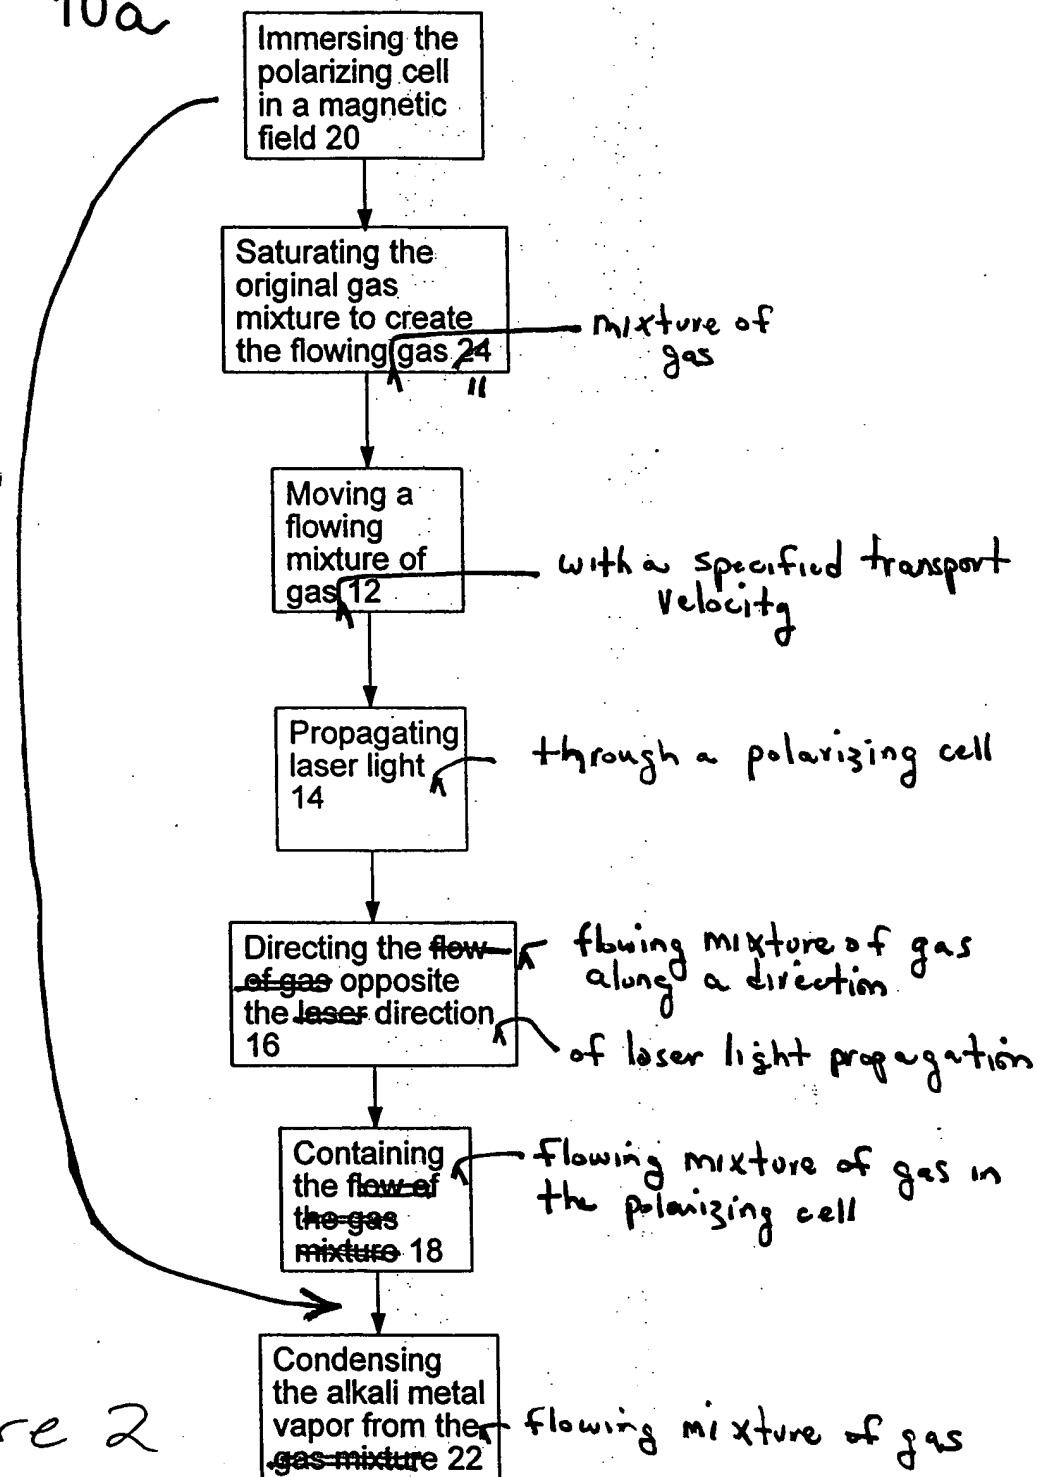 10a
Immersing the
polarizing cell
in a magnetic
field 20
Saturating the
original gas
mixture to create
the flowing gas 24
11
mixture of
gas
Moving a
flowing
mixture of
gas 12
with a specified transport
velocity
Propagating
laser light
14
through a polarizing cell
Directing the flow
of gas opposite
the laser direction
16
flowing mixture of gas
along a direction
of laser light propagation
Containing
the flow of
the gas
mixture 18
flowing mixture of gas in
the polarizing cell
Condensing
the alkali metal
vapor from the
gas mixture 22
flowing mixture of gas
re 2